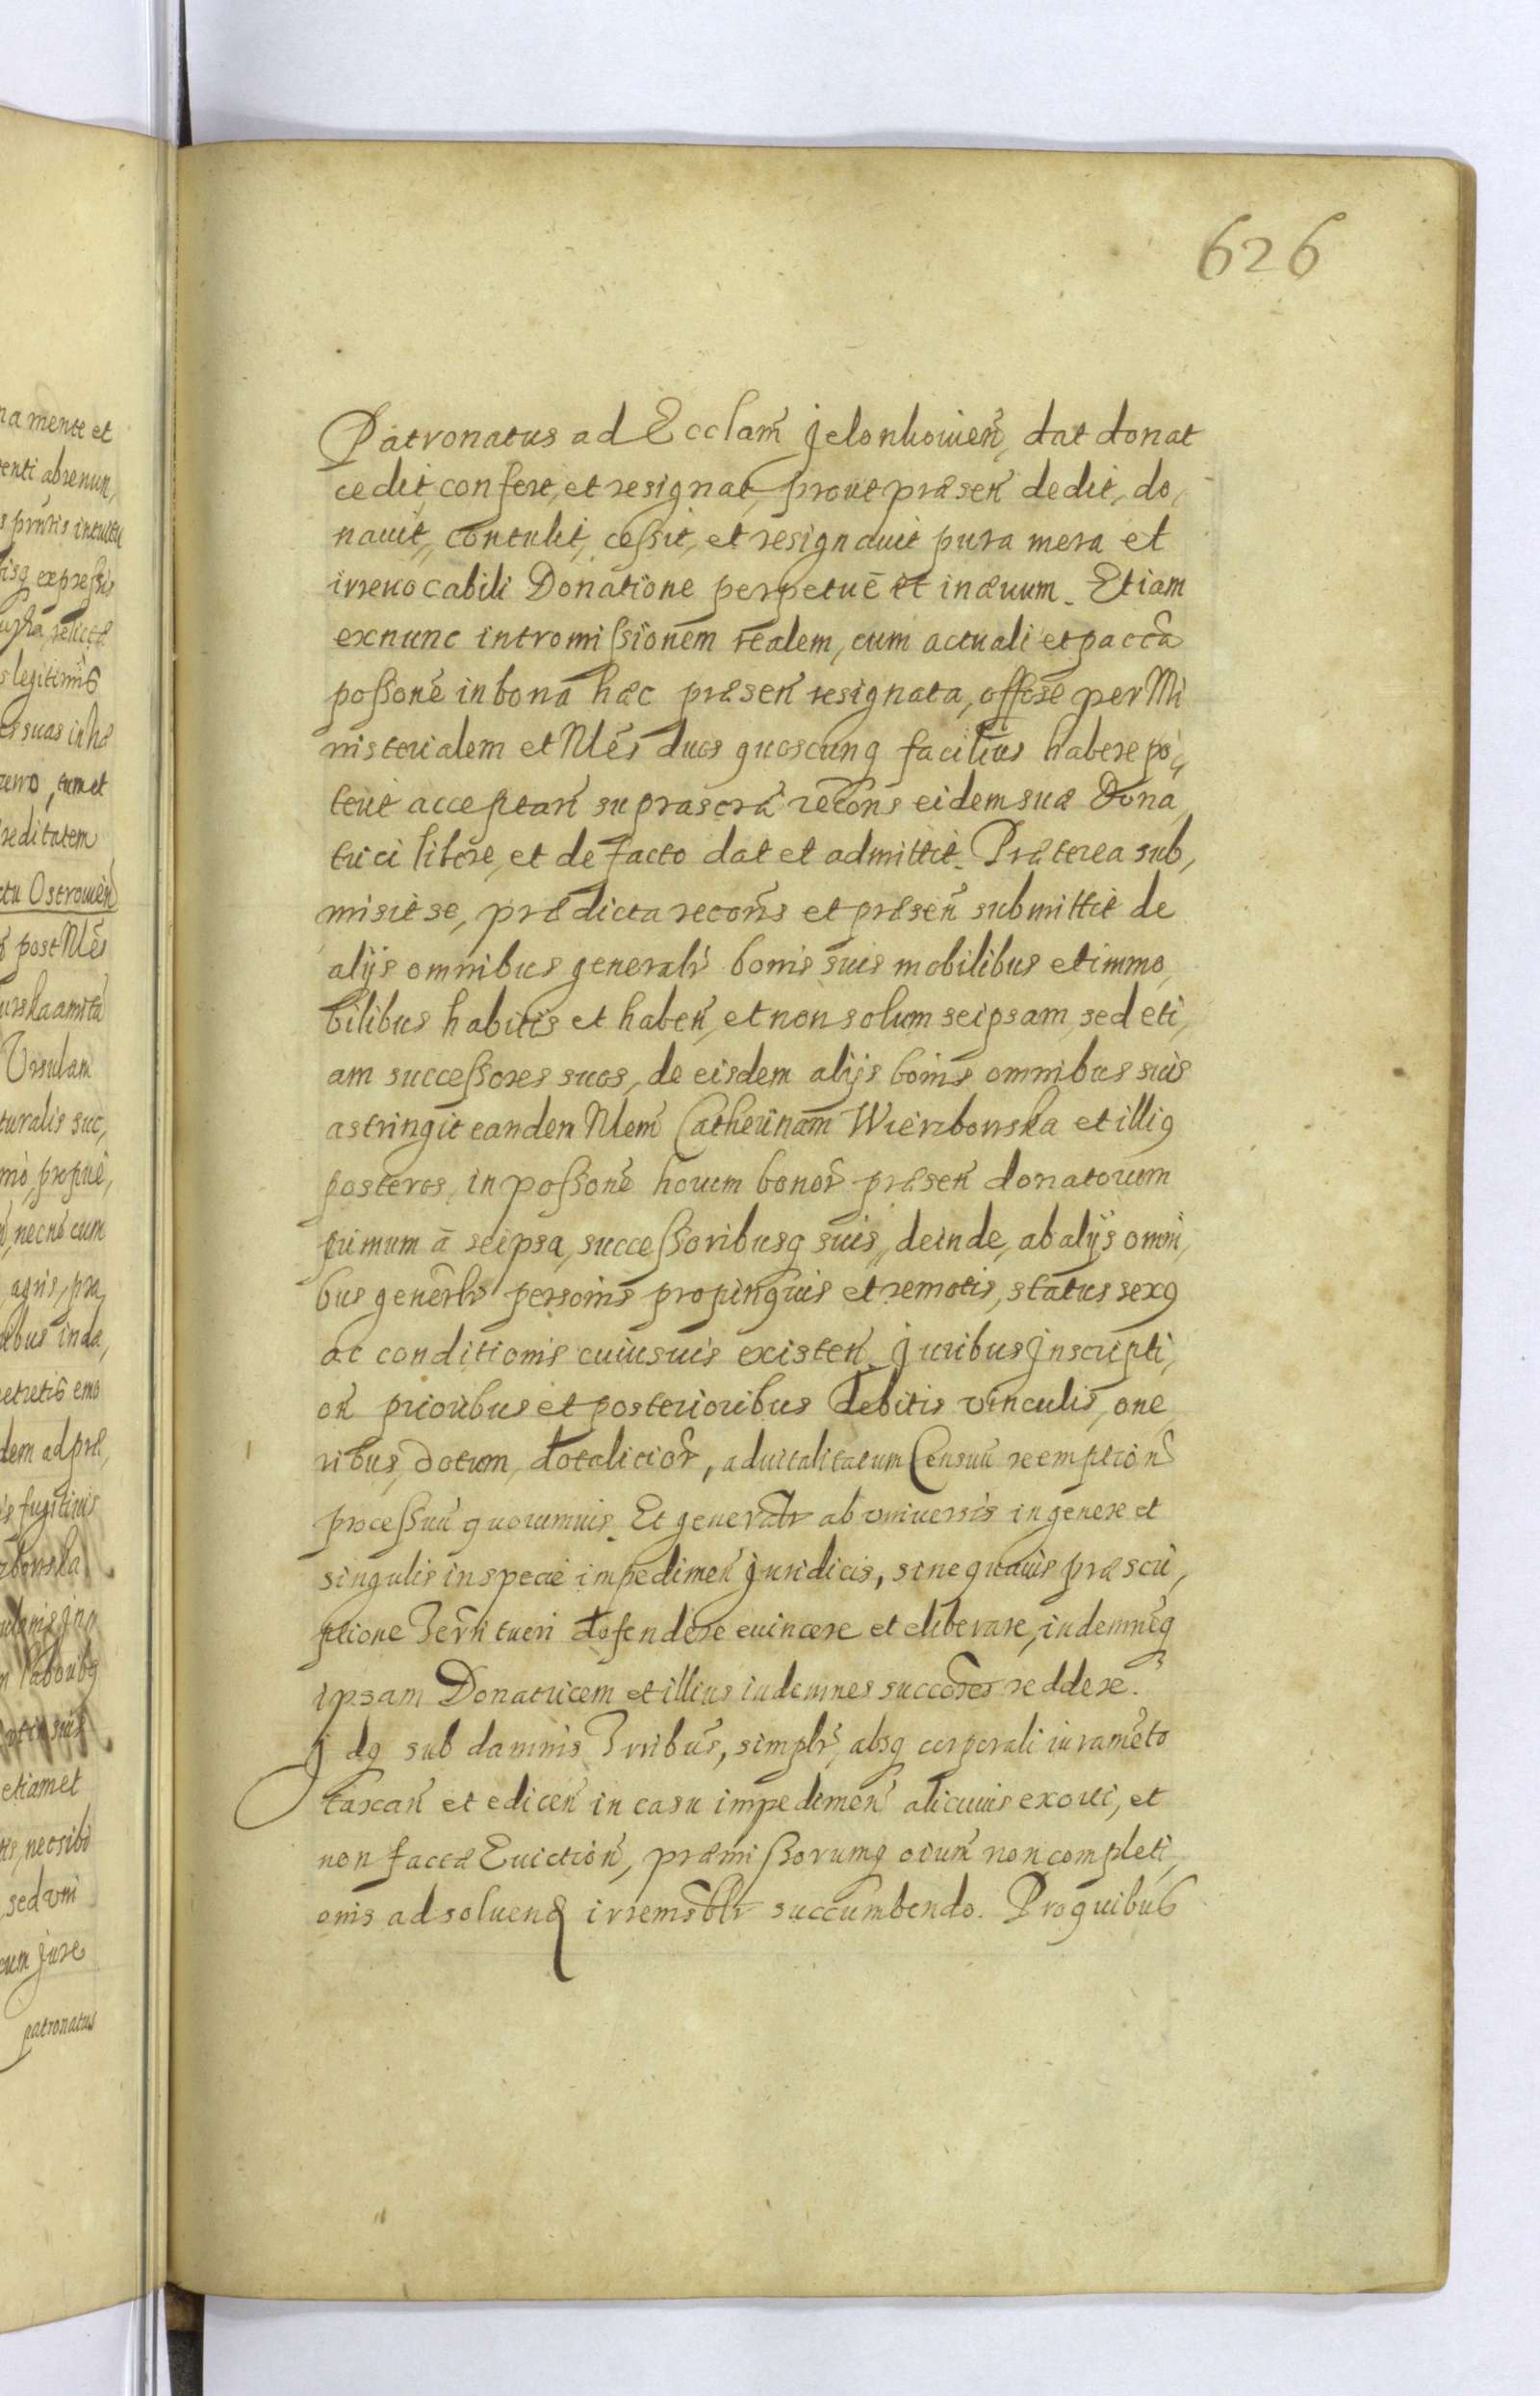 626
Patronatus ad Ecclam̃ Jelonkouień, dat donat
cedit, confert, et resignat, prout præseñ dedit, do,
nauit, contulit, cessit, et resignauit pura mera et
irreuocabili Donatione perpetuẽ et inæuum. Etiam
exnunc intromissionem realem, cum actuali et paccã
possonẽ in bona hæc præseñ resignata, offosẽ per Mi
nisterialem et Nlẽs duos quoscunq facilius habere po,
terit acceptañ suprascrã recoñs eidem suæ Dona,
trici libere, et de facto dat et admittit. Præterea sub,
misit se, prædicta recoñs et præseñ submittit de
alijs omnibus generalr̃ bonis suis mobilibus et immo,
bilibus habitis et habeñ, et non solum seipsam, sed eti,
am successores suos, de eisdem alijs bonis omnibus suis
astringit eandem Nlem̃ Catherinam Wierzbowska et illiq
posteros, in possonẽ horum bonor̃ præseñ donatorum
primum ã seipsa, successoribusq suis, deinde, ab alijs omni,
bus generlr̃ personis propinquis et remotis, status sexq
ac conditionis cuiusuis existeñ. Juribus Jnscripti,
oñ prioribus et posterioribus debitis vinculis, one,
ribus, dotum, dotalicior̃, aduitalitatum Censuũ reemptioñ
processuũ quorumuis. Et generalr̃ ab vniuersis in genere et
singulis in specie impedimeñ Juridicis, sine quauis præscri,
ptione Terrñ tueri defendere euincere et eliberare, indemnẽq
ipsam Donatricem et illius indemnes succores reddere.
Jdq sub damnis Trribus̃, simplr̃, absq corporali iuramẽto
taxañ et ediceñ in casu impedimeñ alicuius exorti, et
non factæ Euictioñ, præmissorumq oium̃ non completi,
onis ad soluend irremsblr̃ succumbendo. Pro quibus
na mente et
legitimis
reditatem
Ostrouień
post Nlẽs
Vrsulam
turalis suc,
nec nõ cum
agris, pra,
dem ad præ,
fugitiuis
etiam et
sed vni
cum jure
patronatus